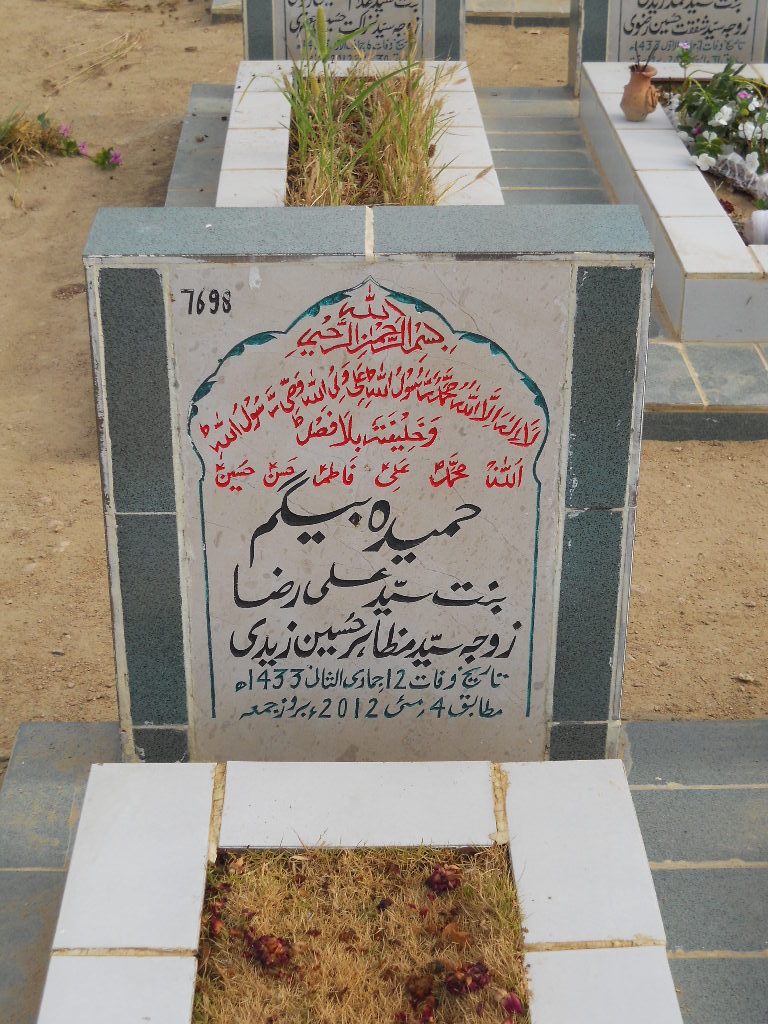 بنت سید غلام
زوجہ سید نزاکت حسین
زوجہ سید شفقت حسین نقوی
7698
بسم اللہ الرحمن الرحیم
لا الہ الا اللہ محمد رسول اللہ علی ولی اللہ وصی رسول اللہ
و خلیفتہ بلا فصل
اللہ محمد علی فاطمہ حسن حسین
حمیدہ بیگم
بنت سیّد علی رضا
زوجہ سیّد مظاہر حسین زیدی
تاریخ وفات 12 جمادی الثانی 1433ھ
مطابق 4 مئی 2012ء بروز جمعہ